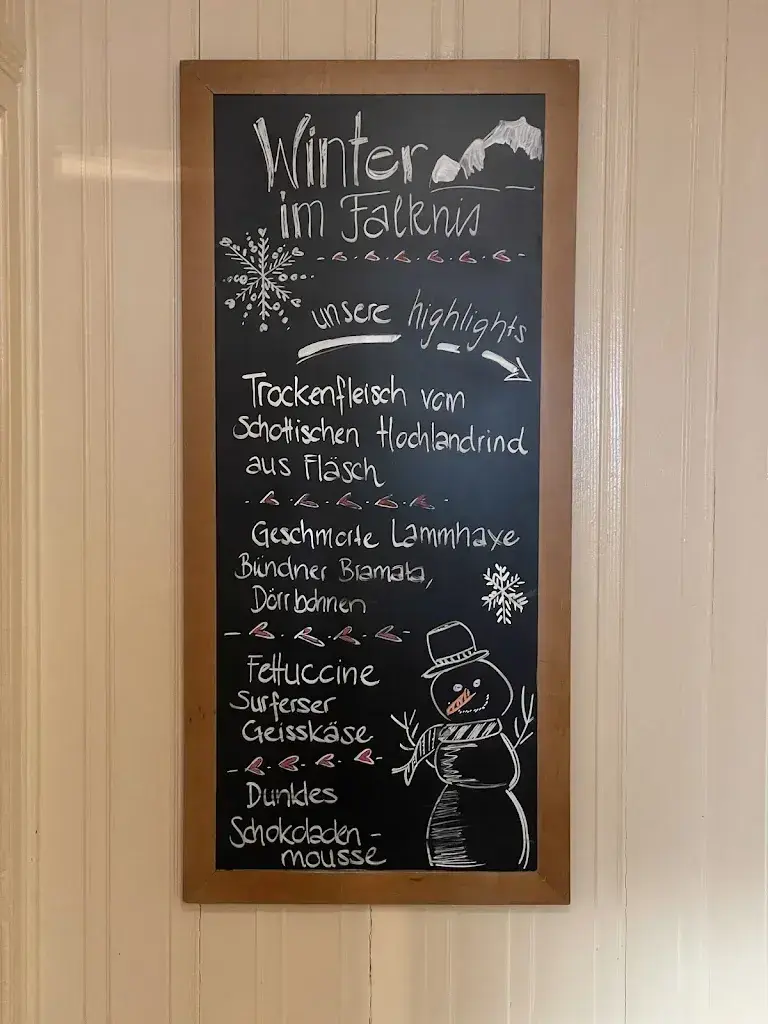 Winter
im Falknis
unsere highlights
Trockenfleisch vom
Schottischen Hochlandrind
aus Fläsch
Geschmorte Lammhaxe
Bündner Bramata,
Dörrbohnen
Fettuccine
Surferser
Geisskäse
Dunkles
Schokoladen-
mousse